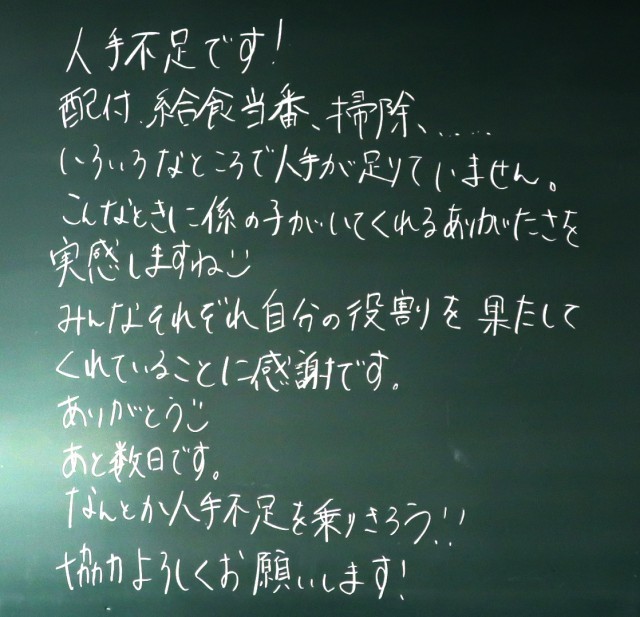 人手不足です!
配付、給食当番、掃除、......
いろいろなところで人手が足りていません。
こんなときに係の子がいてくれるありがたさを
実感しますね
みんなそれぞれ自分の役割を果たして
くれていることに感謝です。
ありがとう
あと数日です。
なんとか人手不足を乗りきろう!!
協力よろしくお願いします!